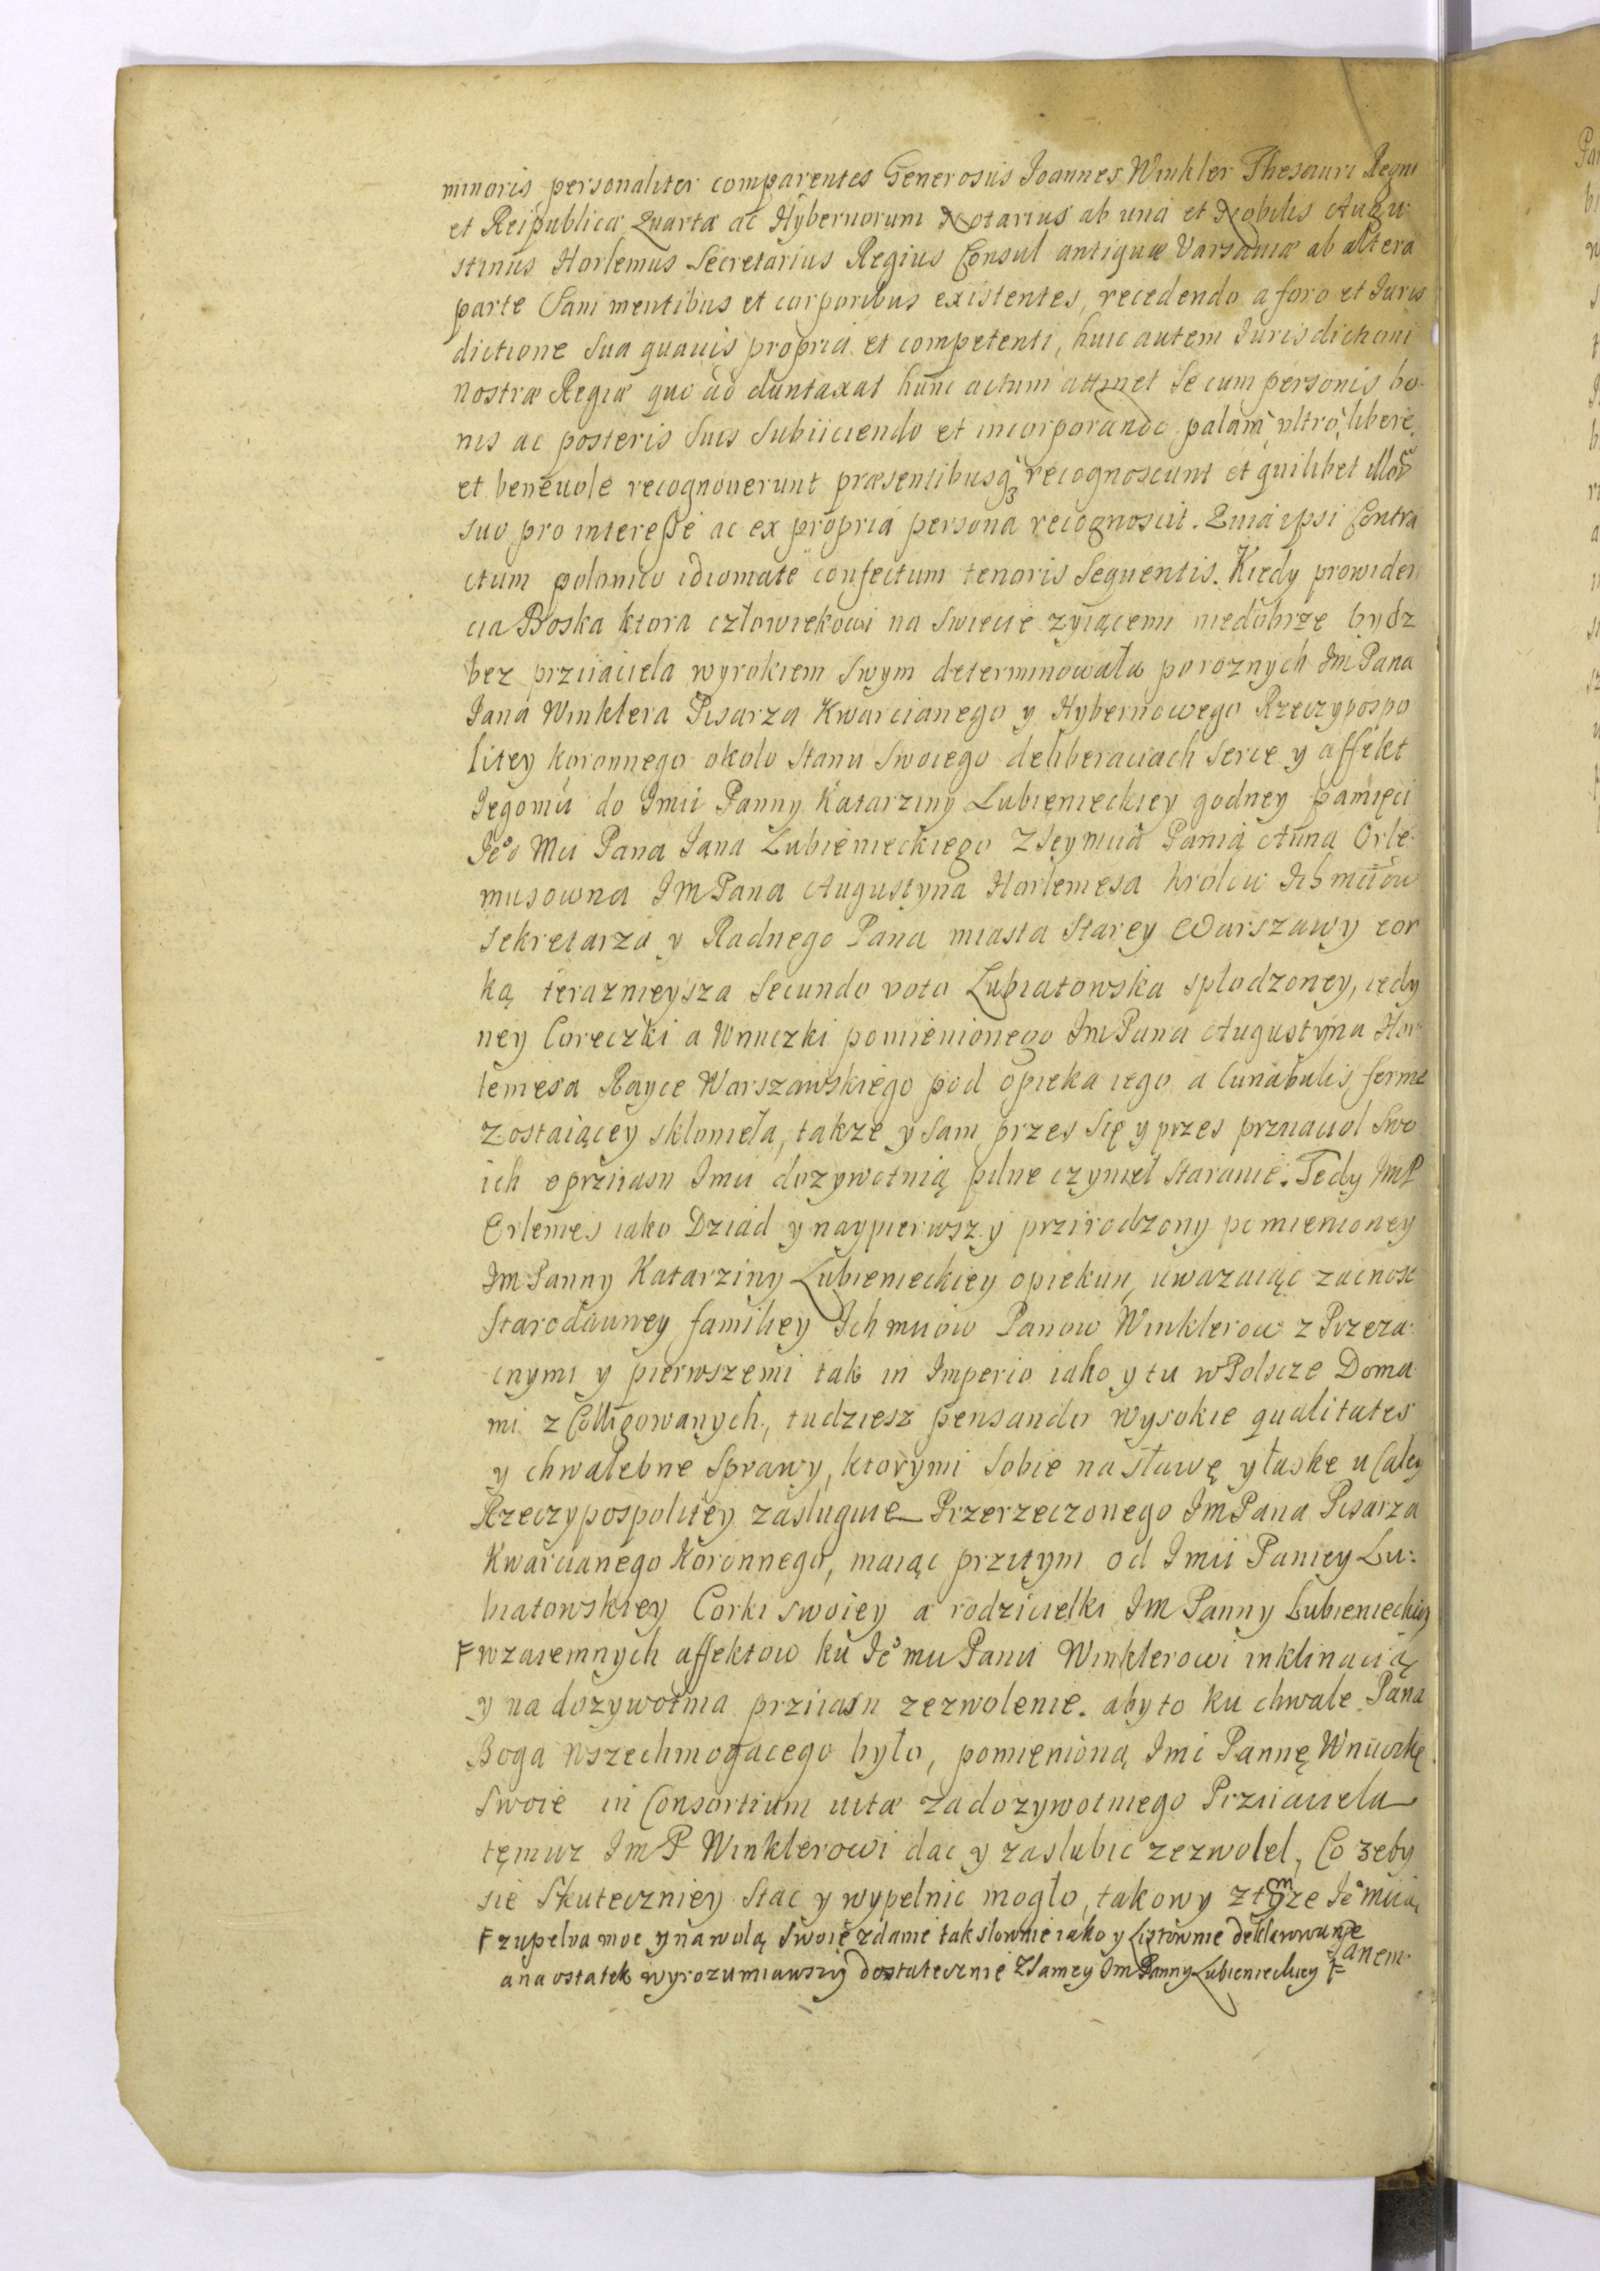 minoris personaliter comparentes Generosus Joannes Winkler Thesauri Regni
et Reipublicæ Quartæ ac Hybernorum Notarius ab una et Nobilis Augu
stinus Horlemus Secretarius Regius Consul antiquæ Varsaviæ ab altera
parte Sani mentibus et corporibus existentes, recedendo a foro et Juris
dictione sua quavis propria et competenti, huic autem Jurisdictioni
nostræ Regiæ quo ad duntaxat hunc actum attinet se cum personis bo
nis ac posteris suis subiiciendo et incorporando palam, ultro, libere
et benevole recognoverunt præsentibusq3 recognoscunt et quilibet illor
suo pro interesse ac ex propria persona recognoscit. Quia ipsi Contra
ctum polonico idiomate confectum tenoris sequentis. Kiędy prowiden
cia Boska ktora człowiekowi na swiecie zyiącemu niedobrze bydz
bez prziiaciela wyrokiem swym determinowała po roznych Im Pana
Jana Winklera Pisarza Kwarcianego y Hybernowego Rzeczypospo
litey koronnego okolo stanu swoiego deliberaciach serce y affekt
Jegomci do Imci Panny Katarziny Lubienieckiey godney pamięci
Jeo Mci Pana Jana Lubienieckiego z Ieymcią Panią Anną Orle
musowna IM Pana Augustyna Horlemesa Krolow Ich mciow
sekretarza y Radnego Pana miasta Starey Warszawy cor
ką terazneysza secundo voto Lubiatowska splodzoney, iedy
ney Coreczki a Wnuczki pomienionego Im Pana Augustyna Hor
lemesa Rayce Warszawskiego pod opieka iego a cunabulis ferme
zostaiącey skloniela, takze y sam przes się y przes prziiaciol swo
ich o prziiasn Imci dozywotnią pilne czyniel staranie. Tedy Im P
Orlemes iako Dziad y naypierwszy przirodzony pomienioney
Im Panny Katarziny Lubienieckiey opiekun, uwazaiąc zacnosc
starodawney familiey Ich mciow Panow Winklerow z Przeza
cnymi y pierwszemi tak in Imperio iako y tu w Polscze Doma
mi z Colligowanych, tudziesz pensando wysokie qualitates
y chwalebne sprawy, ktorymi sobie na sławę y łaske u Caley
Rzeczypospolitey zasluguie Przerzeczonego Im Pana Pisarza
Kwarcianego Koronnego, maiąc przitym od Imci Paniey Lu
biatowskiey Corki swoiey a rodzicielki Im Panny Lubienieckiey
F wzaiemnych affektow ku Jeo mci Panu Winklerowi inklinacią
y na dozywotnia prziiasn zezwolenie. aby to ku chwale Pana
Boga Wszechmogącego było, pomienioną Imc Pannę Wnuczkę
swoie in Consortium vitæ za dozywotniego Prziiaciela
tęmuz Im P Winklerowi dac y zaslubic zezwolel, Co zeby
sie skuteczniey stac y wypelnic mogło, takowy z tymze Jeo mcią
F zupelna moc y na wolą swoię zdanie tak slownie iako y Listownie deklarowane
a na ostatek wyrozumiawszy dostatecznie z samey Im Panny Lubienieckiey F
Panem